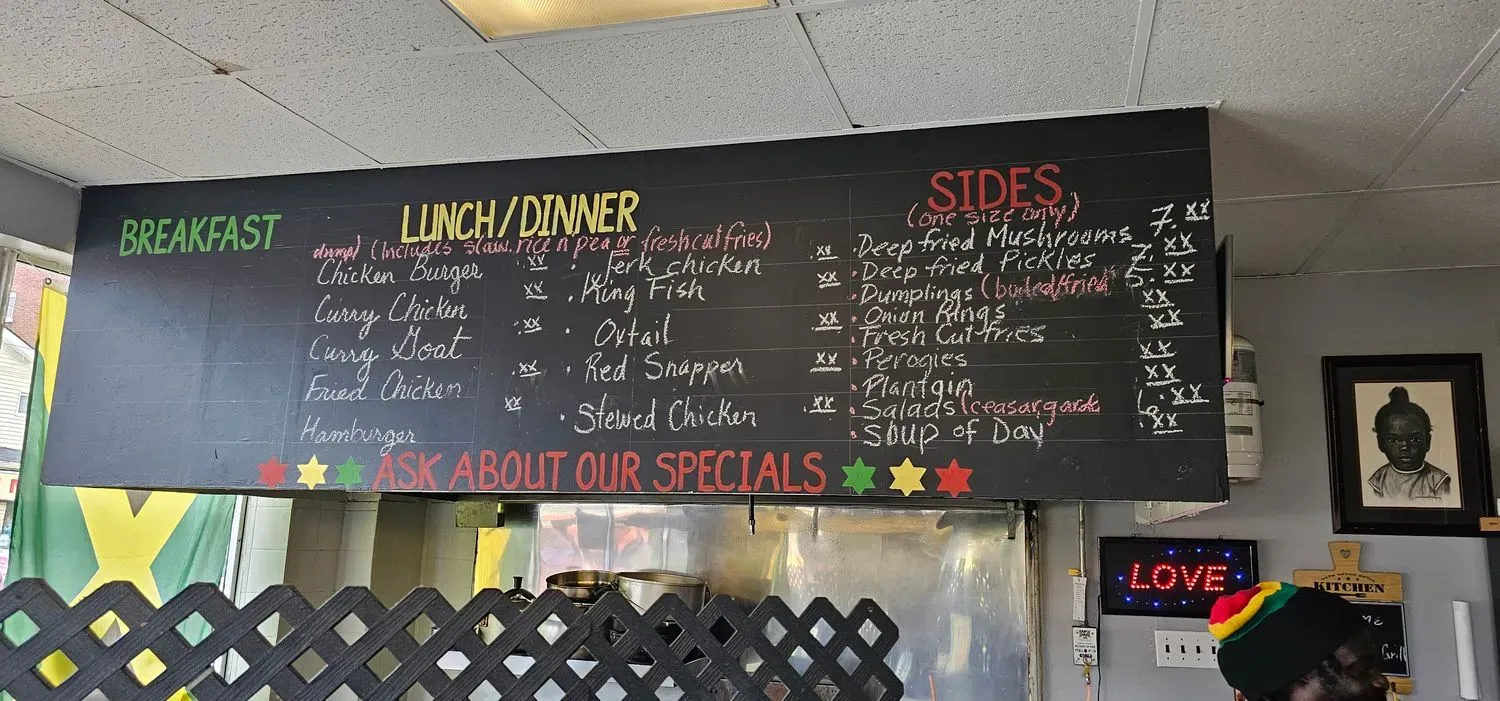 BREAKFAST
LUNCH/DINNER
(Includes slaw, rice n pea or fresh cut fries)
Chicken Burger xx
Curry Chicken xx
Curry Goat xx
Fried Chicken xx
Hamburger xx
· Jerk chicken xx
· King Fish xx
· Oxtail xx
· Red Snapper xx
· Stewed Chicken xx
SIDES
(one size only)
· Deep fried Mushrooms 7. xx
· Deep fried Pickles 7. xx
· Dumplings (boiled/fried 5. xx
· Onion Rings xx
· Fresh Cut fries xx
· Perogies xx
· Plantain xx
· Salads (ceasar, garde 6. xx
· Soup of Day xx
ASK ABOUT OUR SPECIALS
LOVE
KITCHEN
Grill